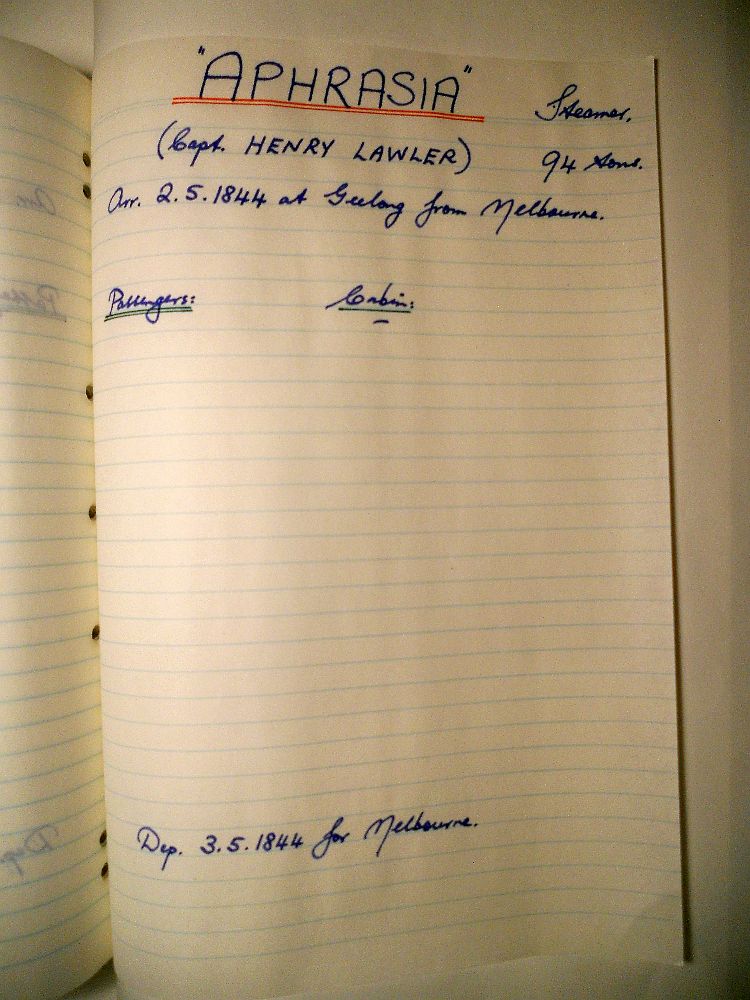 "APHRASIA"
Steamer.
(Capt. HENRY LAWLER)
94 tons.
Arr. 2.5.1844 at Geelong from Melbourne.
Passengers: Cabin:
Dep. 3.5.1844 for Melbourne.